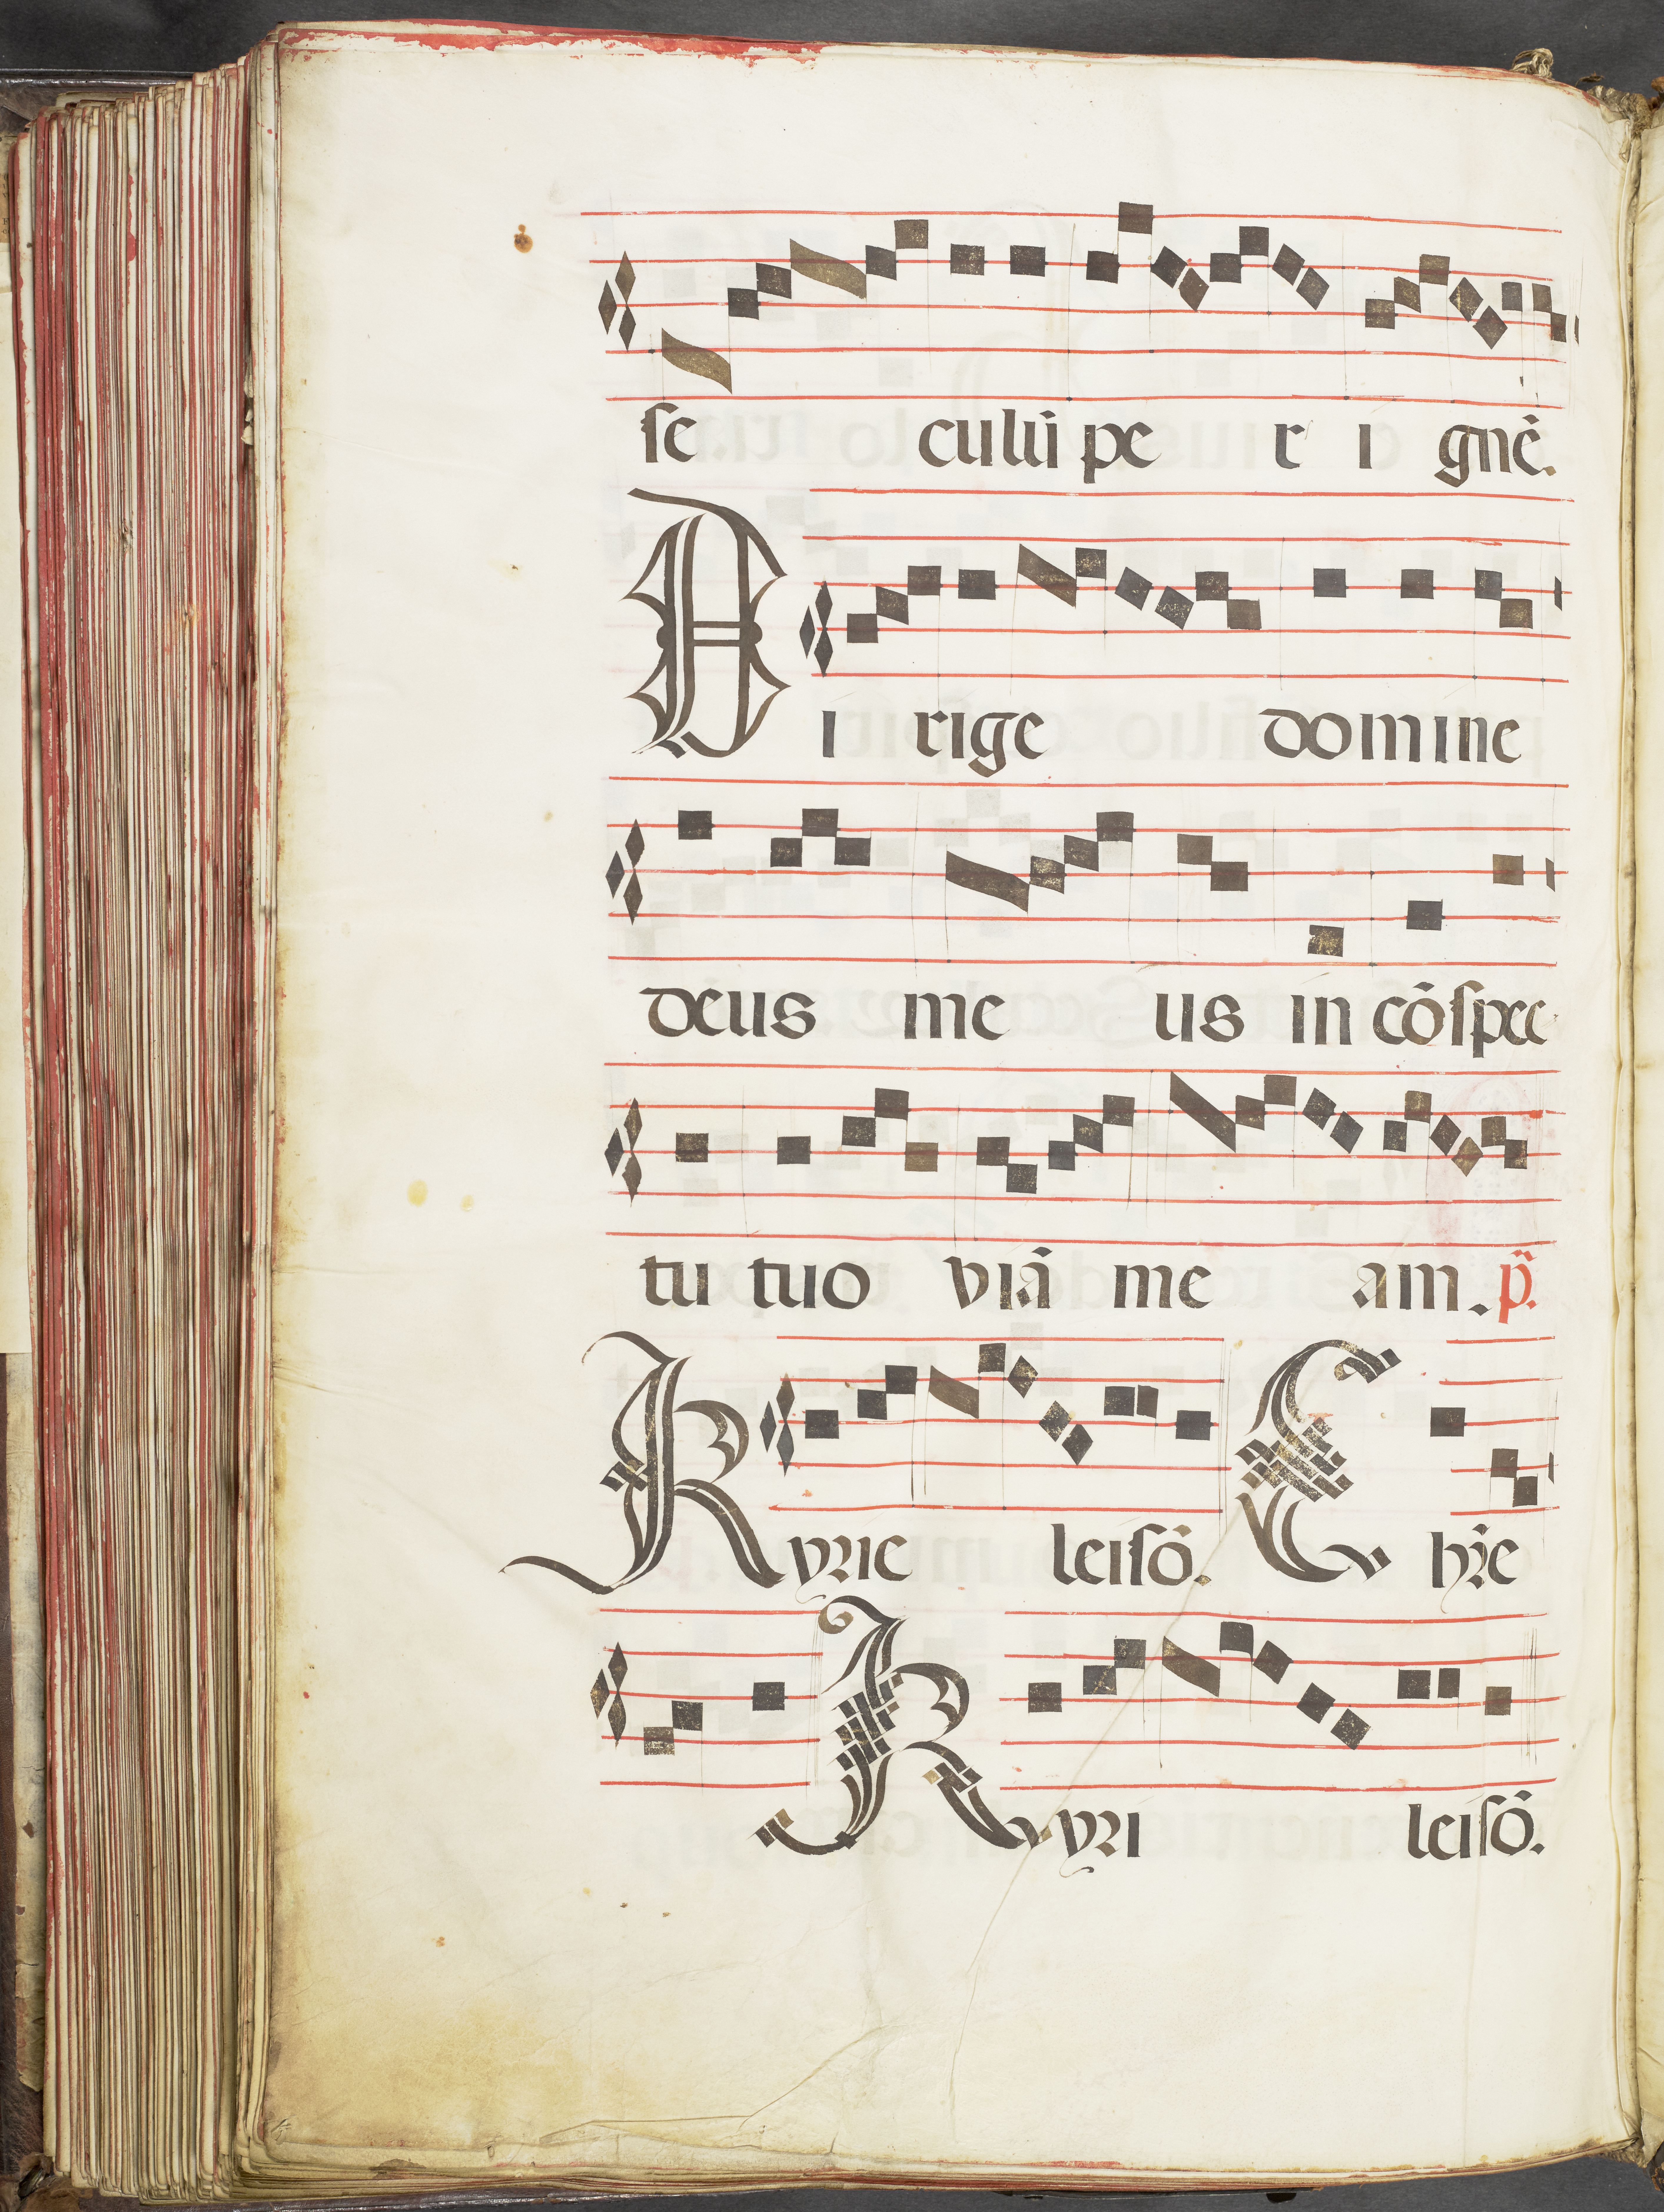 se culũ pe r i gnẽ.
Di rige domine
deus me us in cõspec
tu tuo viã me am. p̃.
Kyrie leisõ. Chr̃e
Kyri leisõ.